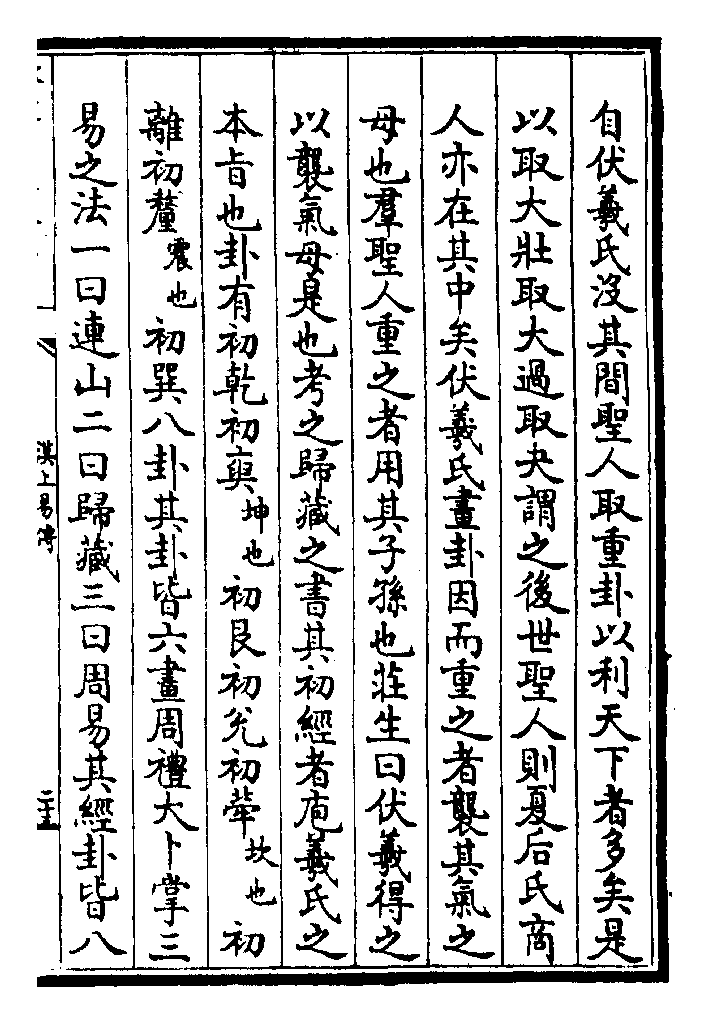 自伏羲氏沒其間聖人取重卦以利天下者多矣是
以取大壯取大過取夬謂之後世聖人則夏后氏商
人亦在其中矣伏羲氏畫卦因而重之者襲其氣之
母也羣聖人重之者用其子孫也莊生曰伏羲得之
以襲氣母是也考之歸藏之書其初經者庖羲氏之
本旨也卦有初乾初奭坤也初艮初兊初犖坎也初
離初釐震也初巽八卦其卦皆六畫周禮大卜掌三
易之法一曰連山二曰歸藏三曰周易其經卦皆八
漢上易傳